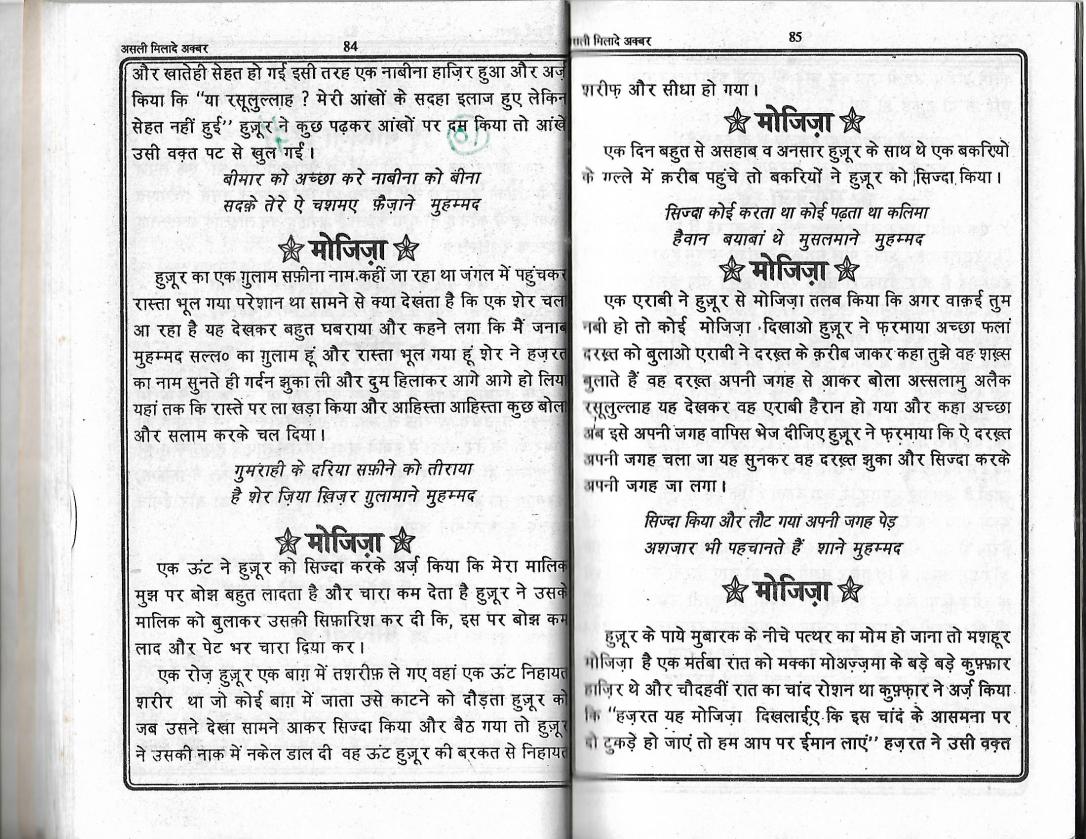 असली मिलादे अक्बर
84
और खातेही सेहत हो गई इसी तरह एक नाबीना हाज़िर हुआ और अर्ज़
किया कि “या रसूलुल्लाह ? मेरी आंखों के सदहा इलाज हुए लेकिन
सेहत नहीं हुई” हुज़ूर ने कुछ पढ़कर आंखों पर दम किया तो आंखें
उसी वक़्त पट से खुल गईं।
बीमार को अच्छा करे नाबीना को बीना
सदक़े तेरे ऐ चशमए फ़ैज़ाने मुहम्मद
मोजिज़ा
हुज़ूर का एक ग़ुलाम सफ़ीना नाम कहीं जा रहा था जंगल में पहुंचकर
रास्ता भूल गया परेशान था सामने से क्या देखता है कि एक शेर चला
आ रहा है यह देखकर बहुत घबराया और कहने लगा कि मैं जनाब
मुहम्मद सल्ल० का ग़ुलाम हूं और रास्ता भूल गया हूं शेर ने हज़रत
का नाम सुनते ही गर्दन झुका ली और दुम हिलाकर आगे आगे हो लिया
यहां तक कि रास्ते पर ला खड़ा किया और आहिस्ता आहिस्ता कुछ बोला
और सलाम करके चल दिया।
गुमराही के दरिया सफ़ीने को तीराया
है शेर ज़िया ख़िज़र ग़ुलामाने मुहम्मद
मोजिज़ा
एक ऊंट ने हुज़ूर को सिज्दा करके अर्ज़ किया कि मेरा मालिक
मुझ पर बोझ बहुत लादता है और चारा कम देता है हुज़ूर ने उसके
मालिक को बुलाकर उसकी सिफ़ारिश कर दी कि, इस पर बोझ कम
लाद और पेट भर चारा दिया कर।
एक रोज़ हुज़ूर एक बाग़ में तशरीफ़ ले गए वहां एक ऊंट निहायत
शरीर था जो कोई बाग़ में जाता उसे काटने को दौड़ता हुज़ूर को
जब उसने देखा सामने आकर सिज्दा किया और बैठ गया तो हुज़ूर
ने उसकी नाक में नकेल डाल दी वह ऊंट हुज़ूर की बरकत से निहायत
मिलादे अक्बर
85
शरीफ़ और सीधा हो गया।
मोजिज़ा
एक दिन बहुत से असहाब व अनसार हुज़ूर के साथ थे एक बकरियों
के गल्ले में क़रीब पहुंचे तो बकरियों ने हुज़ूर को सिज्दा किया।
सिज्दा कोई करता था कोई पढ़ता था कलिमा
हैवान बयाबां थे मुसलमाने मुहम्मद
मोजिज़ा
एक एराबी ने हुज़ूर से मोजिज़ा तलब किया कि अगर वाक़ई तुम
नबी हो तो कोई मोजिज़ा दिखाओ हुज़ूर ने फ़रमाया अच्छा फलां
दरख़्त को बुलाओ एराबी ने दरख़्त के क़रीब जाकर कहा तुझे वह शख़्स
बुलाते हैं वह दरख़्त अपनी जगह से आकर बोला अस्सलामु अलैक
रसूलुल्लाह यह देखकर वह एराबी हैरान हो गया और कहा अच्छा
अब इसे अपनी जगह वापिस भेज दीजिए हुज़ूर ने फ़रमाया कि ऐ दरख़्त
अपनी जगह चला जा यह सुनकर वह दरख़्त झुका और सिज्दा करके
अपनी जगह जा लगा।
सिज्दा किया और लौट गया अपनी जगह पेड़
अशजार भी पहचानते हैं शाने मुहम्मद
मोजिज़ा
हुज़ूर के पाये मुबारक के नीचे पत्थर का मोम हो जाना तो मशहूर
मोजिज़ा है एक मंर्तबा रात को मक्का मोअज़्ज़मा के बड़े बड़े कुफ़्फ़ार
हाज़िर थे और चौदहवीं रात का चांद रोशन था कुफ़्फ़ार ने अर्ज़ किया
कि “हज़रत यह मोजिज़ा दिखलाईए कि इस चांद के आसमना पर
दो टुकड़े हो जाएं तो हम आप पर ईमान लाएं” हज़रत ने उसी वक़्त